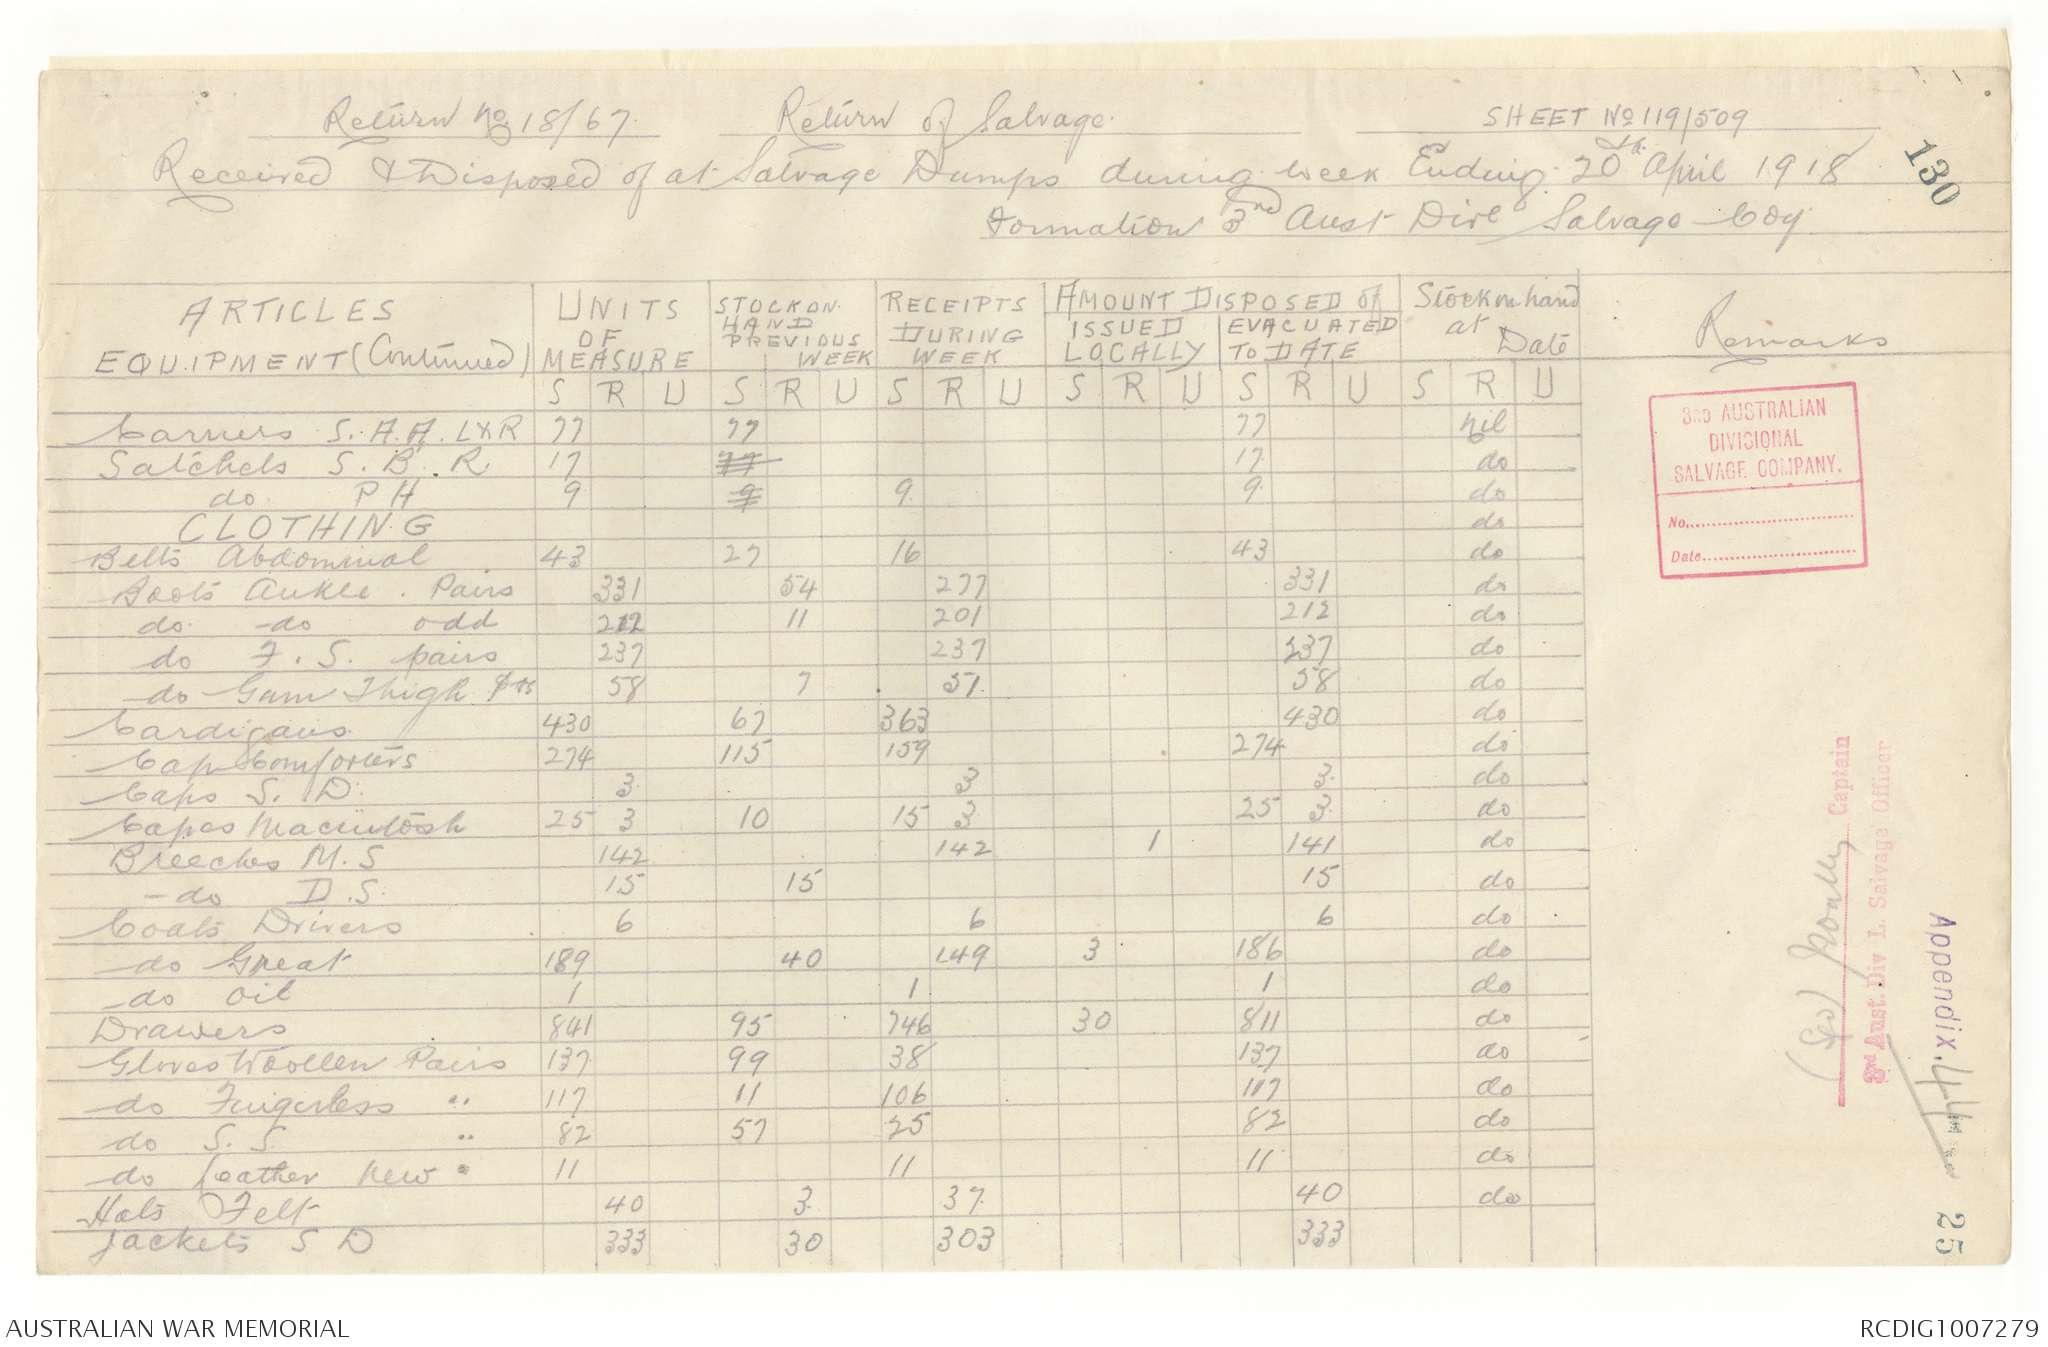 Return No 18/67. Return of Salvage. SHEET No 119/509
130
Received & Disposed of at Salvage Dumps during week Ending 20th April 1918
Formation 3nd Aust Divl Salvage Coy.
ARTICLES EQUIPMENT (Continued) UNITS OF MEASURE STOCK ON HAND PREVIOUS WEEK RECEIPTS DURING WEEK AMOUNT DISPOSED of ISSUED LOCALLY EVACUATED TO DATE Stock on hand at Date Remarks
S R U S R U S R U S R U S R U S R U
Carriers S.A.A. LXR 77 77 77 Nil
Satchels S.B.R 17 77 17 do
do PH 9 9 9 9 do
CLOTHING do
Belts Abdominal 43 27 16 43 do
Boots Ankle. Pairs 331 54 277 331 do
do -do odd 212 11 201 212 do
do F.S. pairs 237 237 237 do
do Gum Thigh prs 58 7 51 58 do
Cardigans 430 67 363 430 do
Cap Comforters 274 115 159 274 do
Caps S.D. 3 3 3 do
Capes Macintosh 25 3 10 15 3 25 3 do
Breeches M.S 142 142 1 141 do
-do D.S. 15 15 15 do
Coats Drivers 6 6 6 do
do Great 189 40 149 3 186 do
do oil 1 1 1 do
Drawers 841 95 746 30 811 do
Gloves Woollen Pairs 137 99 38 137 do
do Fingerless " 117 11 106 117 do
do S.S. " 82 57 25 82 do
do Leather New " 11 11 11 do
Hats Felt 40 3 37 40 do
Jackets S D 333 30 303 333
3RD AUSTRALIAN
DIVISIONAL
SALVAGE COMPANY.
No.
Date
Captain
3rd Aust. Div L. Salvage Officer
Appendix. 44
25
AUSTRALIAN WAR MEMORIAL
RCDIG1007279